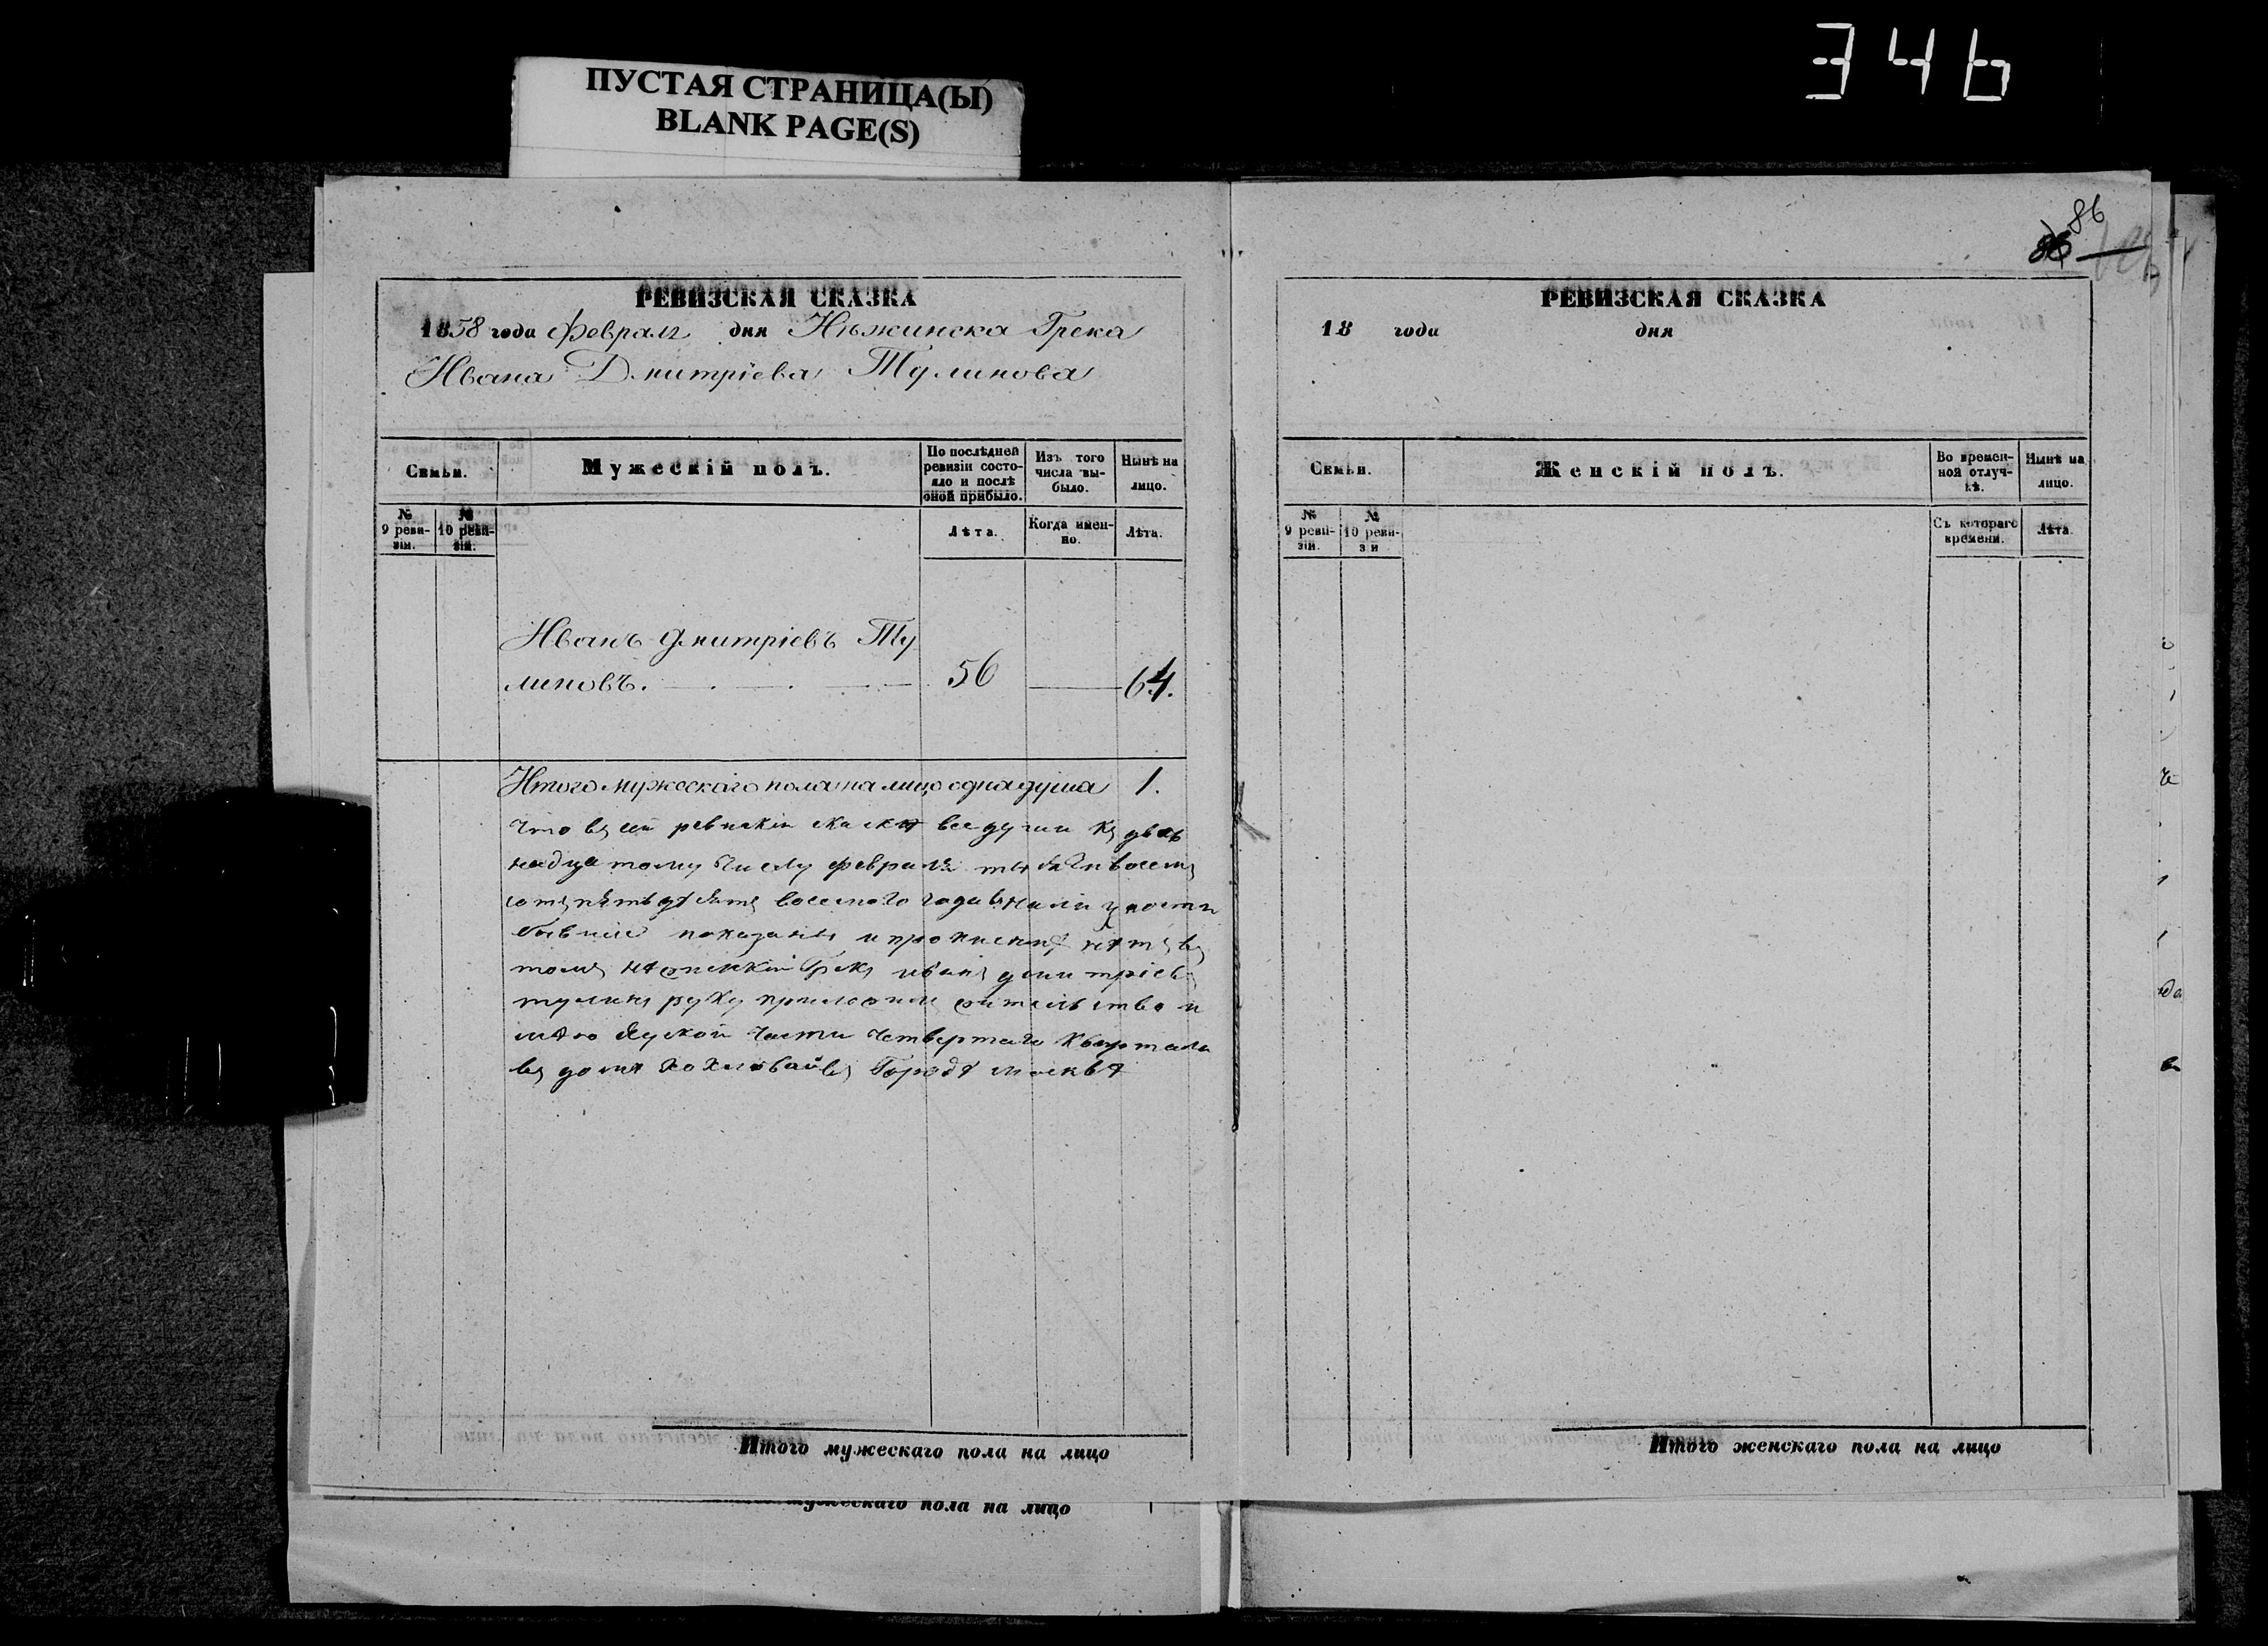 346
ПУСТАЯ СТРАНИЦА(Ы)
BLANK PAGE(S)
РЕВИЗСКАЯ СКАЗКА
1858 года Февраля дня Нѣжинска Грека
Ивана Дмитріева Тулинова
Семьи.
Мужескій полъ.
По послѣдней ревизіи состояло и послѣ оной прибыло.
Изъ того числа выбыло.
Нынѣ на лицо.
№ 9 ревизіи.
№ 10 ревизіи.
Лѣта.
Когда именно.
Лѣта.
Иванъ Дмитріевъ Ту
линовъ.
56
64.
Итого мужескаго пола на лицо одна душа 1.
Что въ сей все души къ двѣ
надцатому числу февраля восемъ
сотъ восмого года
бывшие показаны и прописки нѣтъ въ
томъ Грекъ иванъ дми тріевъ
тулинъ руку приложилъ жительство и
мѣю части четвертаго квартала
въ доме въ Городѣ москвѣ
Итого мужескаго пола на лицо
мужескаго пола на лицо
86
86
РЕВИЗСКАЯ СКАЗКА
18 года дня
Семьи.
Женскій полъ.
Во временной отлучкѣ.
Нынѣ на лицо.
№ 9 ревизіи.
№ 10 ревизи
Съ котораго времени.
Лѣта.
Итого женскаго пола на лицо